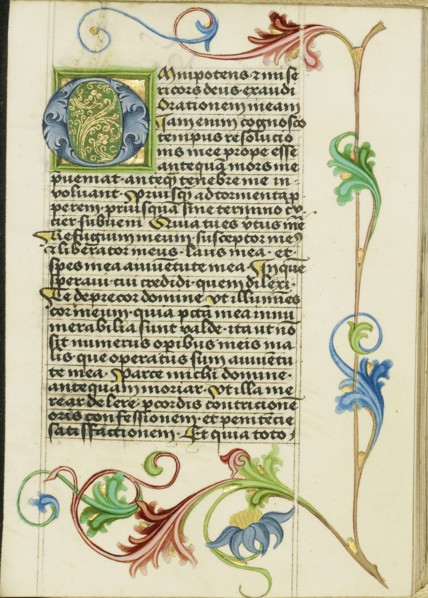 Omnipotens et mise
ricors deus exaudi
orationem meam
iam enim cognosco
tempus resolutio
nis mee prope esse
antequā mors me
pueniat. anteq̄ tenebre me in
voluant. Priusq̄ ad tormenta p
perem. priusquā sine termino cru
cier. subueni. Quia tu es ūtus mea
Refugium meum susceptor meꝰ
et liberator meus. laus mea. et
spes mea a iuuētute mea. In quē
speraui. cui credidi. quem dilexi.
Te deprecor domine. vt illumies
cor meum. quia pctā mea innu
merabilia sunt valde. ita ut nō
sit numerus opibus meis ma
lis que operatus sum a iuuētu
te mea. Parce michi domine.
antequam moriar. Vt illa me
rear delere. p cordis contricione
oris confessionem. et penitēcie
satisfactionem. Et quia toto